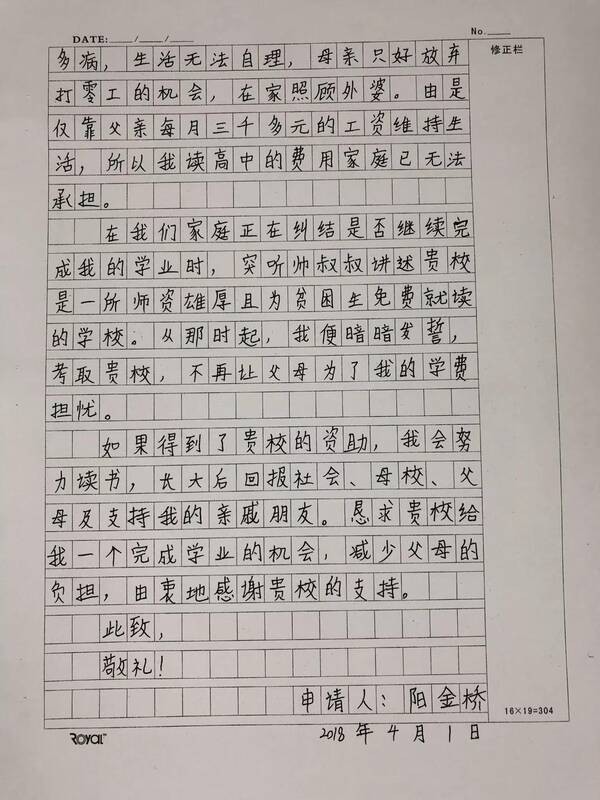 DATE: ___/___/___ No.___
修正栏
多病，生活无法自理，母亲只好放弃
打零工的机会，在家照顾外婆。由是
仅靠父亲每月三千多元的工资维持生
活，所以我读高中的费用家庭已无法
承担。
在我们家庭正在纠结是否继续完
成我的学业时，突听帅叔叔讲述贵校
是一所师资雄厚且为贫困生免费就读
的学校。从那时起，我便暗暗发誓，
考取贵校，不再让父母为了我的学费
担忧。
如果得到了贵校的资助，我会努
力读书，长大后回报社会、母校、父
母及支持我的亲戚朋友。恳求贵校给
我一个完成学业的机会，减少父母的
负担，由衷地感谢贵校的支持。
此致，
敬礼！
申请人：阳金桥
16×19=304
2018年4月1日
ROYAL